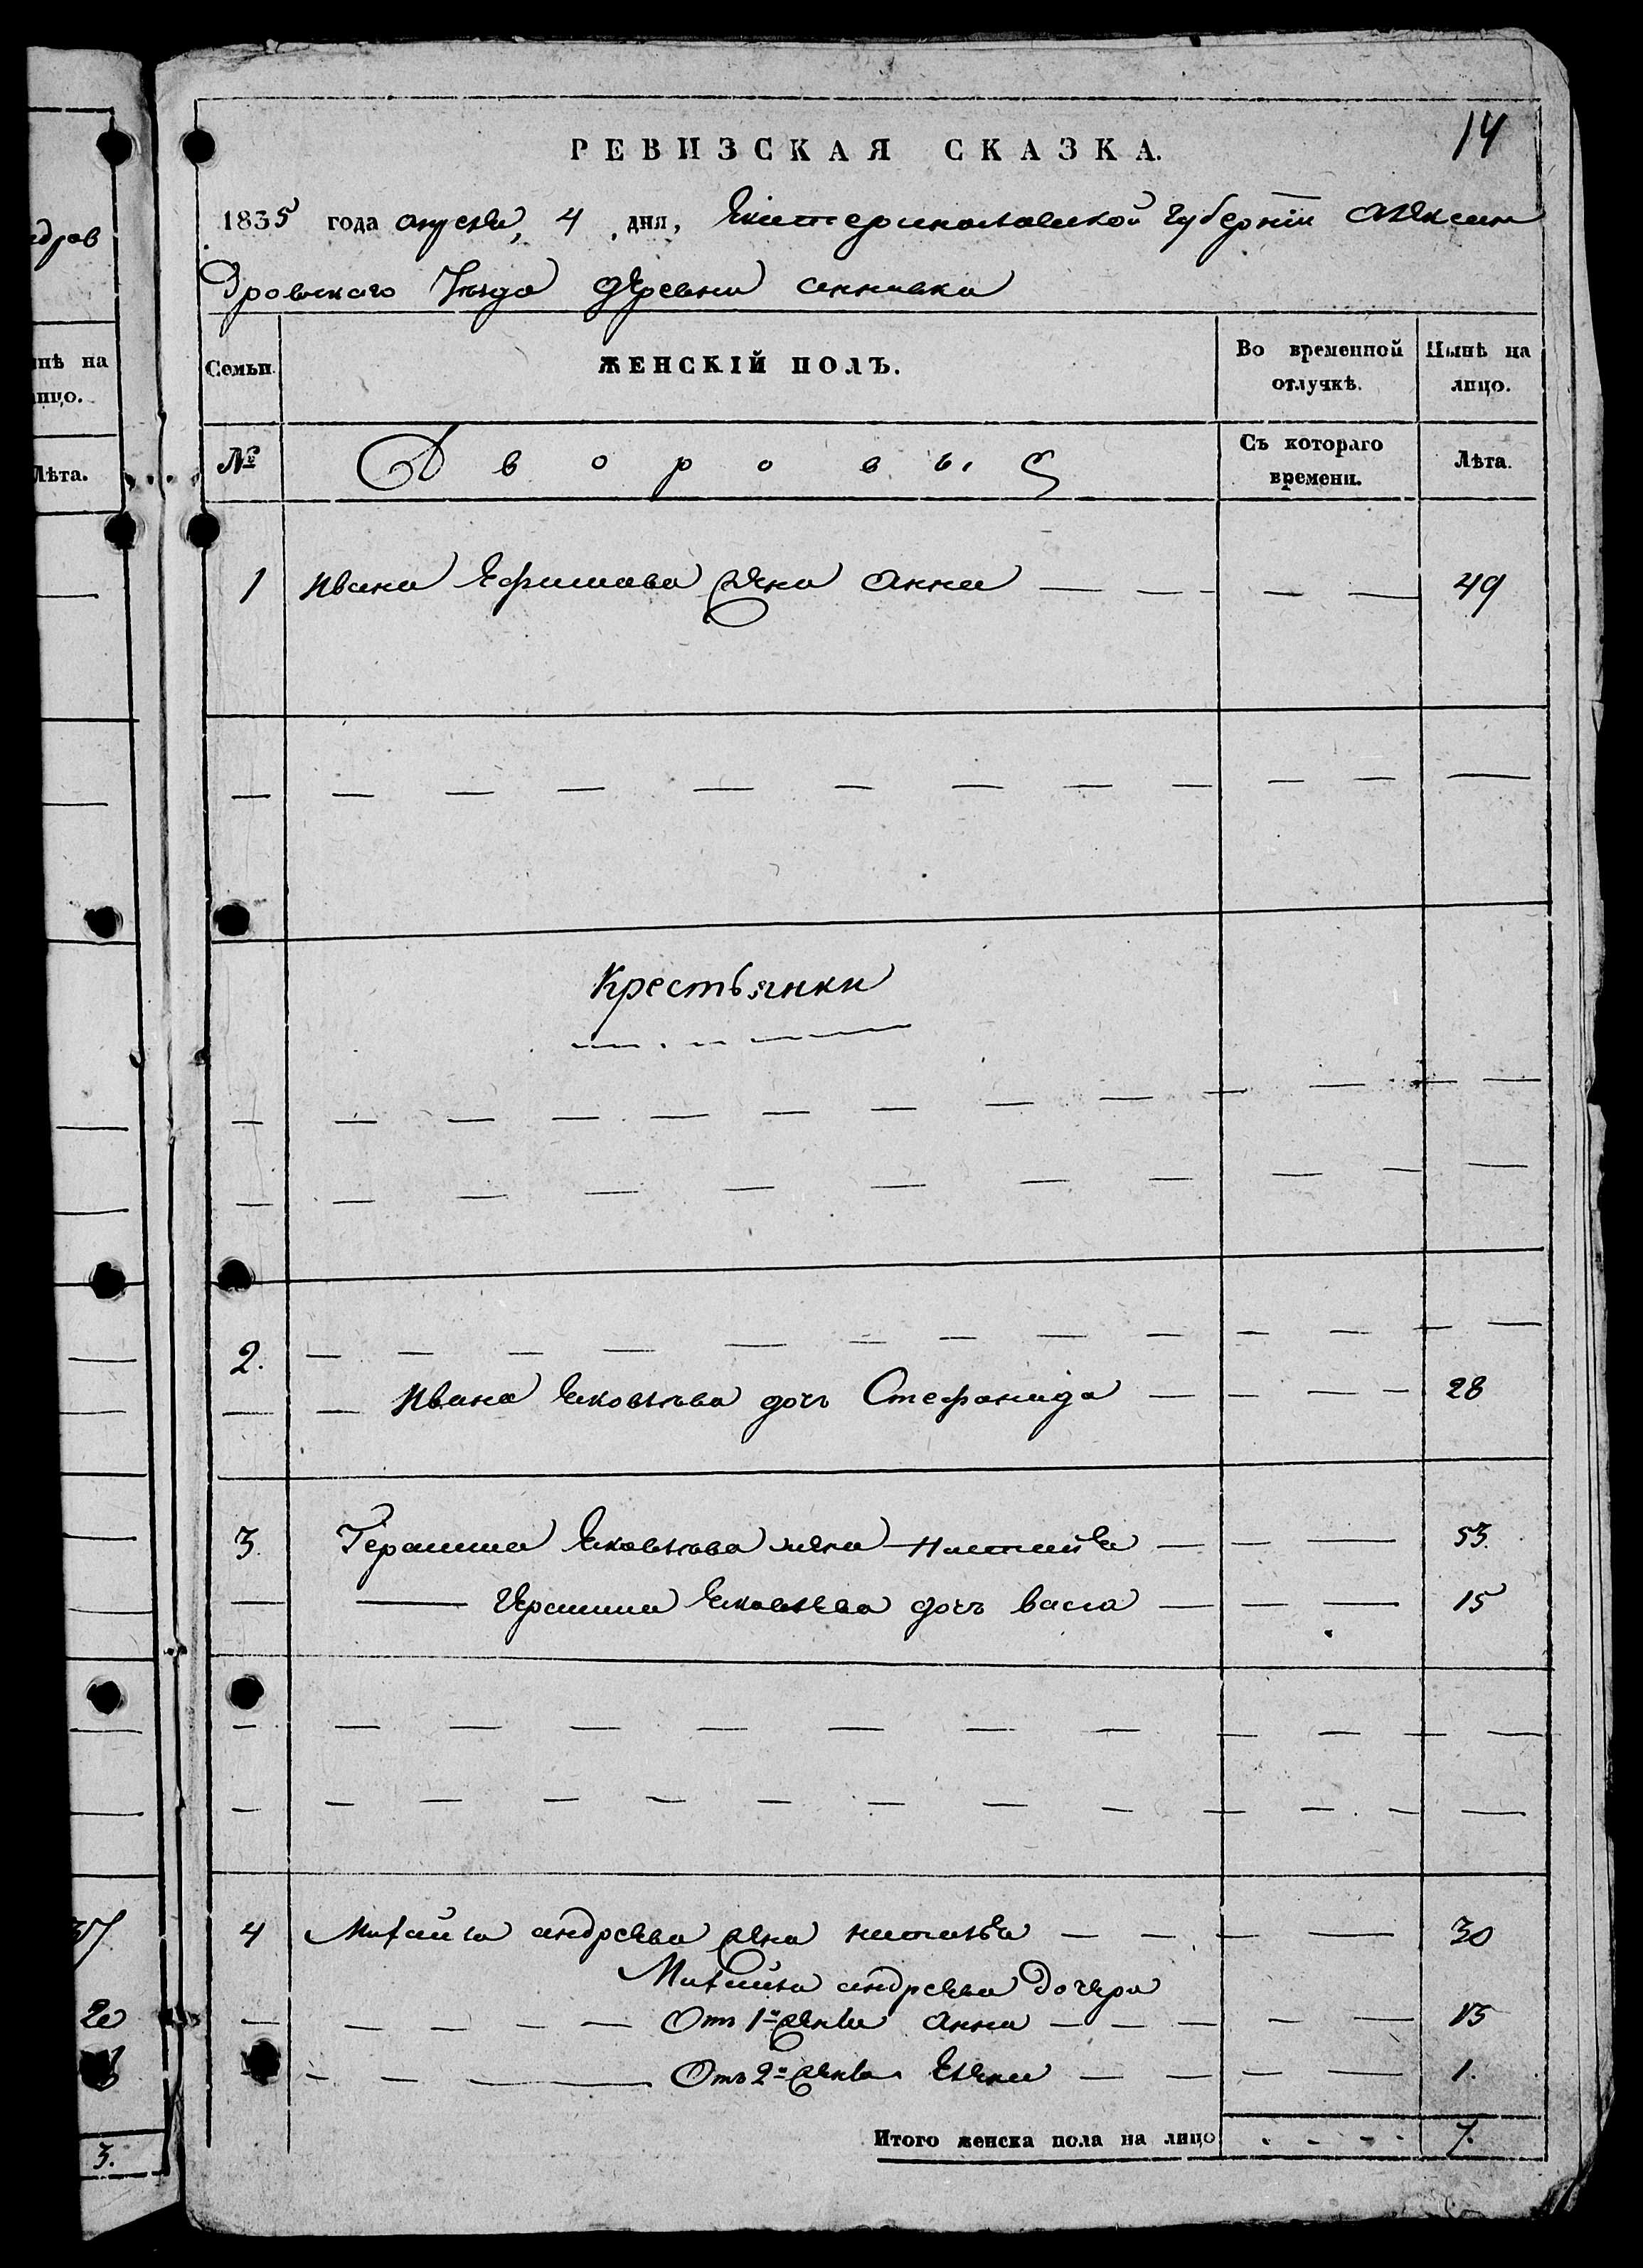 14
РЕВИЗСКАЯ СКАЗКА.
1835 года апреля, 4 дня, Екатеринославской губерніи Алексан
дровскаго Уезда деревни Аннавки
ндров
Семьи. ЖЕНСКІЙ ПОЛЪ. Во временной отлучкѣ. Нынѣ на лицо.
№ Дворовыя Съ котораго времени. Лѣта.
Лѣта.
1 Ивана Ефимова жена Анна — — — — — 49
Крестьянки
2. — — — — — — — — — — — — —
— — Ивана Яковлева дочь Стефанида — — — — 28
3. Герасима Яковлева жена Настасья — — — 53.
— — Герасима Яковлева дочь Васса — — — 15
4 Михайла Андреева жена Наталья — — — — 30
Михайла Андреева дочери
— — — — — Отъ 1й жены Анна — — — — — 13
— — — — Отъ 2й жены Елена — — — — 1.
Итого женска пола на лицо - - - - 7.
37
20
3.